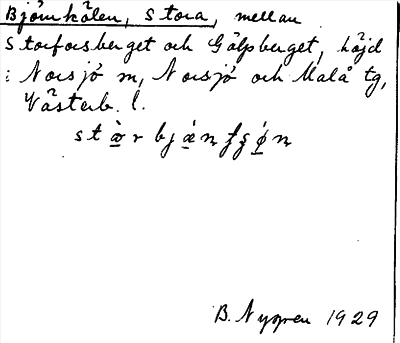 Björnkölen, Stora, mellan
Storforsberget och Gälpberget, höjd
i Norsjö sn, Norsjö och Malå tg,
Västerb. l.
B. Nygren 1929